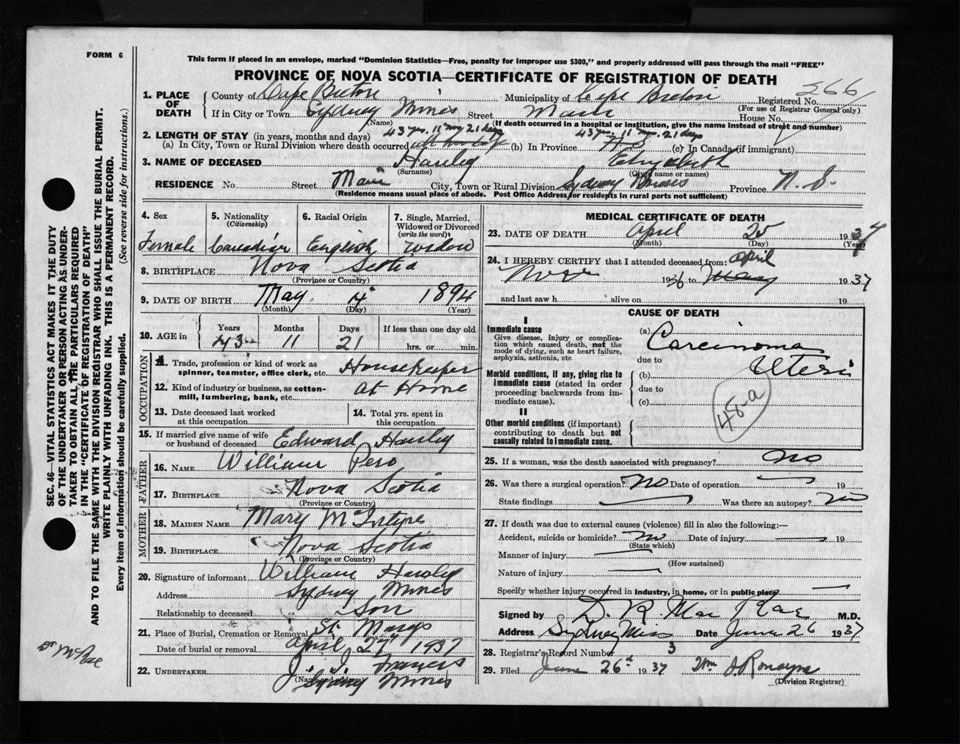 FORM 6
This form if placed in an envelope, marked "Dominion Statistics—Free, penalty for improper use $300," and properly addressed will pass through the mail "FREE"
PROVINCE OF NOVA SCOTIA—CERTIFICATE OF REGISTRATION OF DEATH
SEC. 46—VITAL STATISTICS ACT MAKES IT THE DUTY
OF THE UNDERTAKER OR PERSON ACTING AS UNDER-
TAKER TO OBTAIN ALL THE PARTICULARS REQUIRED
IN THE "CERTIFICATE OF REGISTRATION OF DEATH"
AND TO FILE THE SAME WITH THE DIVISION REGISTRAR WHO SHALL ISSUE THE BURIAL PERMIT.
WRITE PLAINLY WITH UNFADING INK. THIS IS A PERMANENT RECORD.
Every item of information should be carefully supplied. (See reverse side for instructions.)
1. PLACE OF DEATH County of Cape Breton Municipality of Cape Breton Registered No. 266
(For use of Registrar General only)
If in City or Town Sydney Mines Street Main House No.
(Name) (If death occurred in a hospital or institution, give the name instead of street and number)
2. LENGTH OF STAY (in years, months and days) 43 yr. 11 mo 21 days 43 yr. 11 mo. 21 days
(a) In City, Town or Rural Division where death occurred (b) In Province N S (c) In Canada (if immigrant)
3. NAME OF DECEASED Hawley Elizabeth
(Surname) (Given name or names)
RESIDENCE No. Street Main City, Town or Rural Division Sydney Mines Province N. S.
(Residence means usual place of abode. Post Office Address for residents in rural parts not sufficient)
4. Sex 5. Nationality (Citizenship) 6. Racial Origin 7. Single, Married, Widowed or Divorced (write the word)
Female Canadian English Widow
8. BIRTHPLACE Nova Scotia
(Province or Country)
9. DATE OF BIRTH May 4 1894
(Month) (Day) (Year)
10. AGE in Years Months Days If less than one day old
43 11 21 hrs. or min.
OCCUPATION
11. Trade, profession or kind of work as spinner, teamster, office clerk, etc. Housekeeper
12. Kind of industry or business, as cotton-mill, lumbering, bank, etc. at Home
13. Date deceased last worked at this occupation 14. Total yrs. spent in this occupation
15. If married give name of wife or husband of deceased Edward Hawley
FATHER
16. NAME William Pero
17. BIRTHPLACE Nova Scotia
(Province or Country)
MOTHER
18. MAIDEN NAME Mary McIntyre
19. BIRTHPLACE Nova Scotia
(Province or Country)
20. Signature of informant William Hawley
Address Sydney Mines
Relationship to deceased Son
21. Place of Burial, Cremation or Removal St Marys
Date of burial or removal April 27th 1937
22. UNDERTAKER J. J. Francis
(Name and address) Sydney Mines
Dr McRae
MEDICAL CERTIFICATE OF DEATH
23. DATE OF DEATH April 25 1937
(Month) (Day) (Year)
24. I HEREBY CERTIFY that I attended deceased from April
1936 May 1937
and last saw h alive on 19
CAUSE OF DEATH
I
Immediate cause
Give disease, injury or complication which caused death, not the mode of dying, such as heart failure, asphyxia, asthenia, etc.
(a) Carcinoma
due to
Morbid conditions, if any, giving rise to immediate cause (stated in order proceeding backwards from immediate cause).
(b) Uteri
due to
(c)
48-a
II
Other morbid conditions (if important) contributing to death but not causally related to immediate cause.
25. If a woman, was the death associated with pregnancy? no
26. Was there a surgical operation? no Date of operation 19
State findings Was there an autopsy? no
27. If death was due to external causes (violence) fill in also the following:—
Accident, suicide or homicide? no Date of injury 19
(State which)
Manner of injury
(How sustained)
Nature of injury
Specify whether injury occurred in industry, in home, or in public place
Signed by D. R. MacRae M.D.
Address Sydney Mines Date June 26 1937
28. Registrar's Record No. 3
29. Filed June 26th 1937 Wm
(Division Registrar)